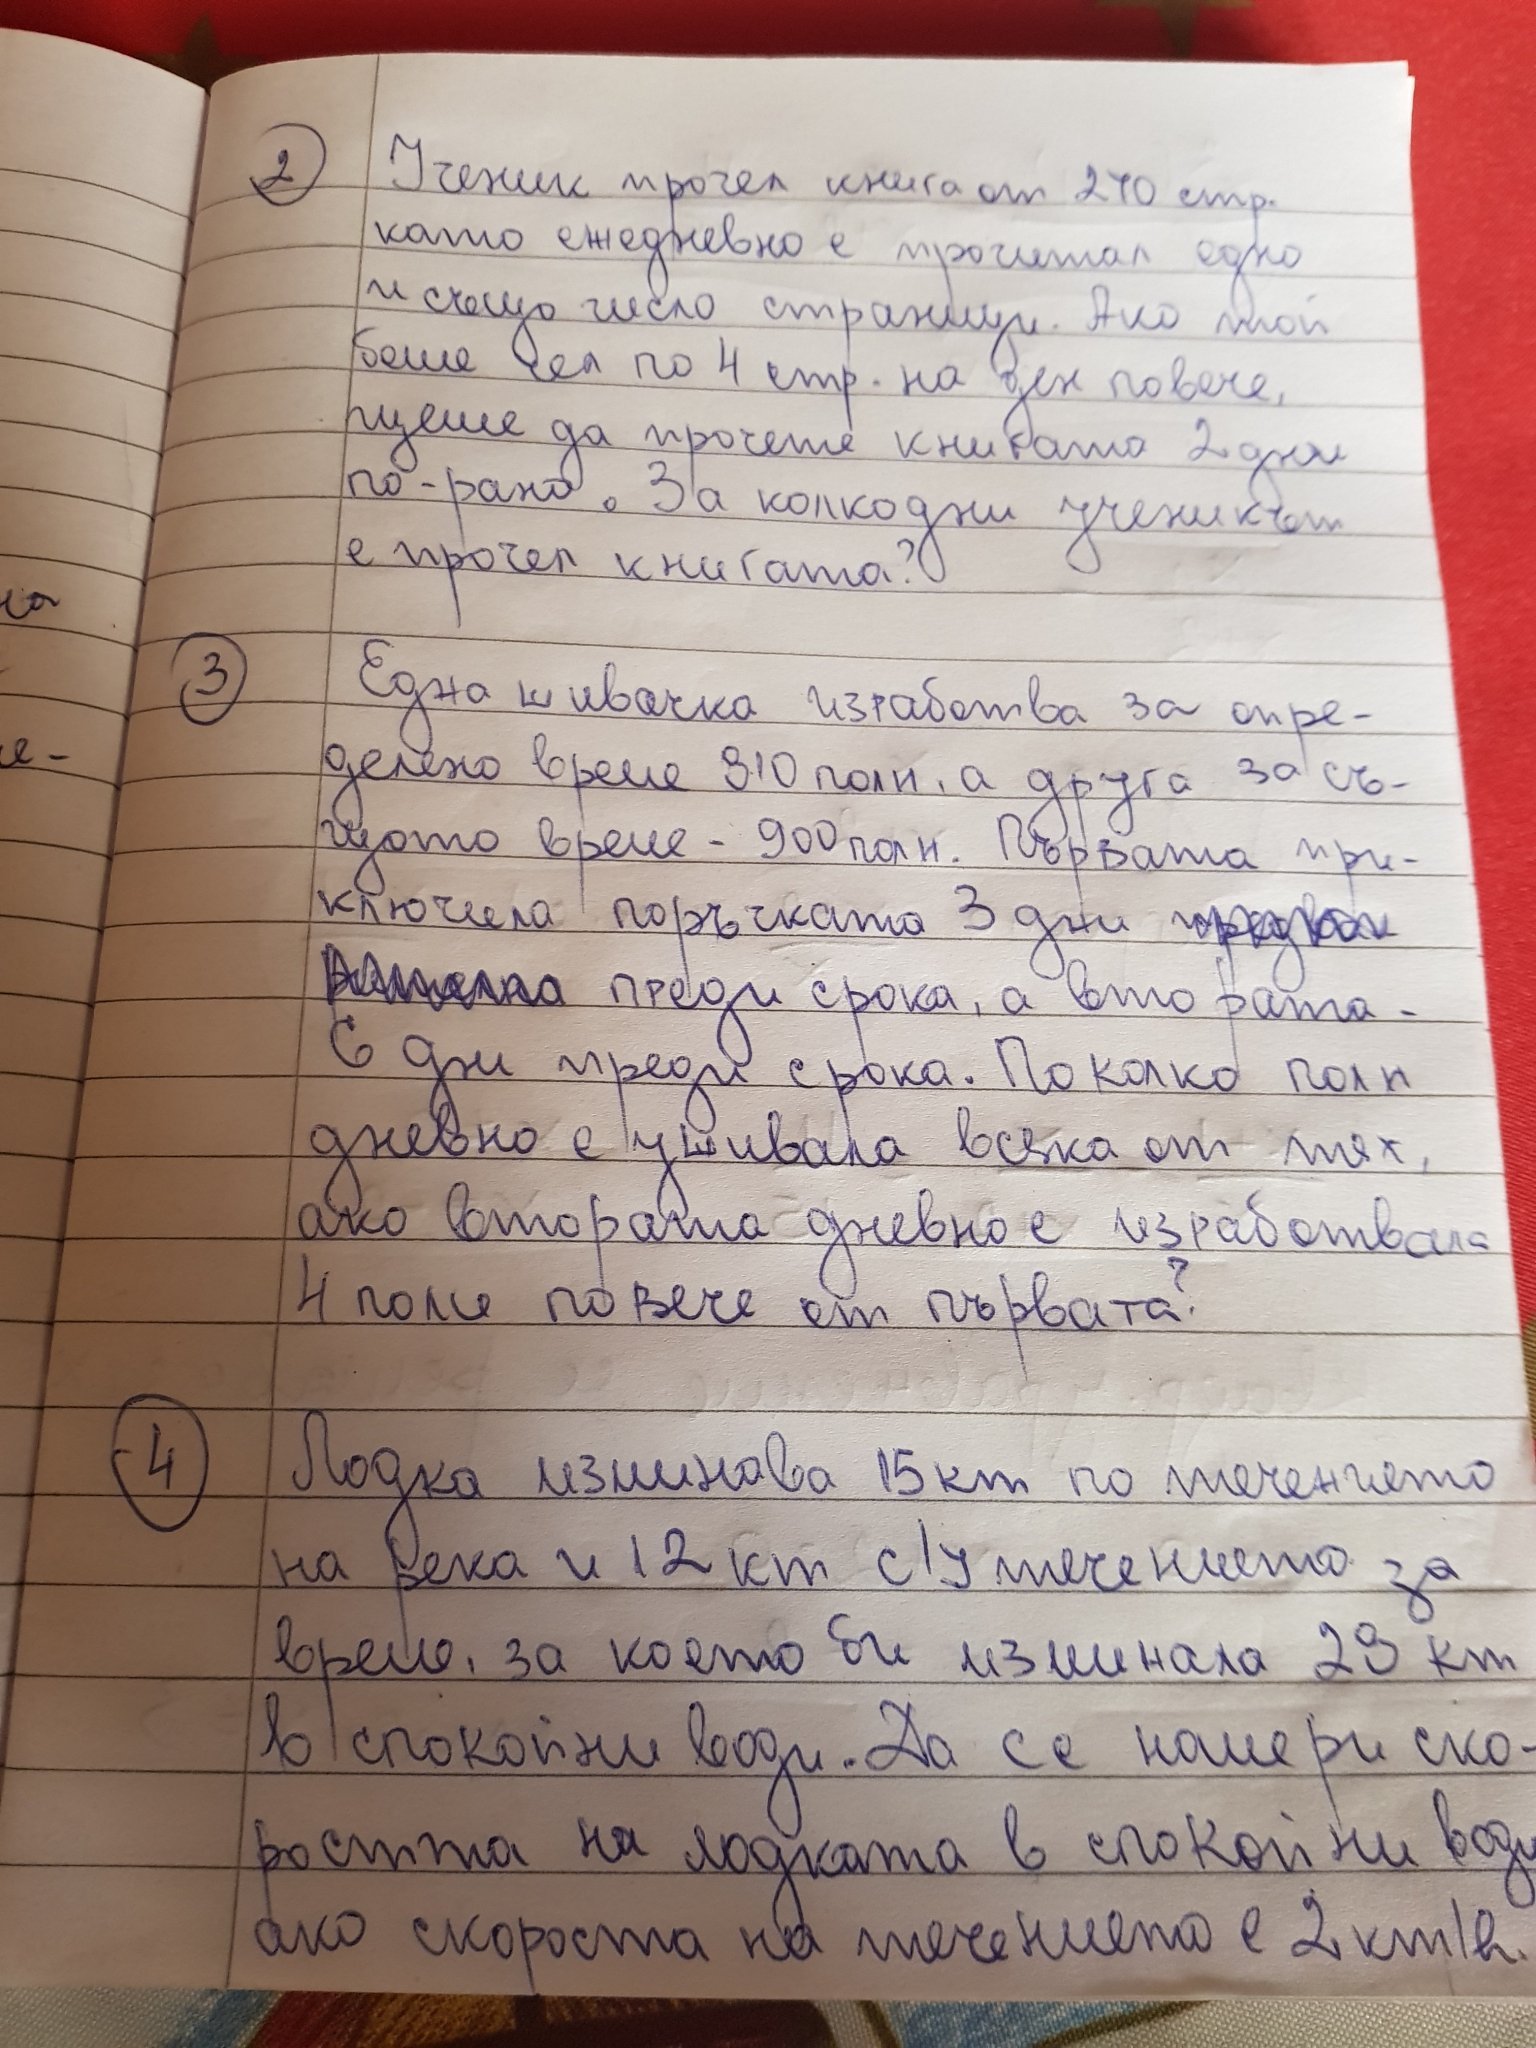 2 Ученик прочел книга от 240 стр.
като ежедневно е прочитал едно
и също число страници. Ако той
беше чел по 4 стр. на ден повече,
щеше да прочете книгата 2 дни
по-рано. За колко дни ученикът
е прочел книгата?
3 Една шивачка изработва за опре-
делено време 810 поли, а друга за съ-
щото време - 900 поли. Първата при-
ключила поръчката 3 дни
преди срока, а втората -
6 дни преди срока. По колко поли
дневно е ушивала всяка от тях,
ако втората дневно е изработвала
4 поли повече от първата?
4 Лодка изминава 15 km по течението
на река и 12 km с/у течението за
време, за което би изминала 28 km
в спокойни води. Да се намери ско-
ростта на лодката в спокойни води
ако скоростта на течението е 2 km/h.
на
е-